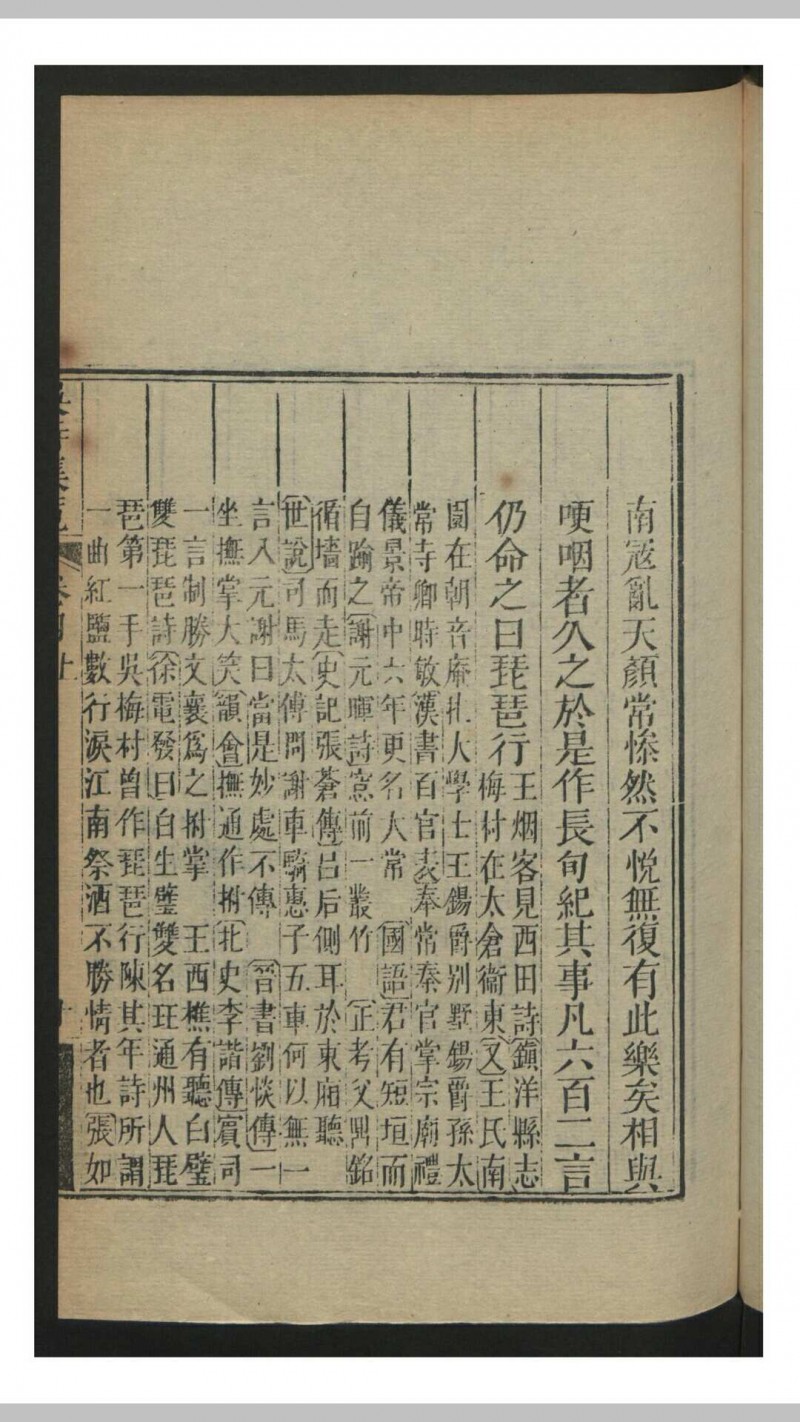 南寇亂天顏常慘然不悅無復有此樂矣相與
哽咽者久之於是作長句紀其事凡六百二言
仍命之曰琵琶行
王烟客見西田詩鎮洋縣志
梅村在太倉衞東又王氏南
園在朝音庵北大學士王錫爵别墅錫爵孫太
常寺卿時敏漢書百官表奉常秦官掌宗廟禮
儀景帝中六年更名太常 國語君有短垣而
自踰之謝元暉詩窻前一叢竹 正考父鼎銘
循墻而走史記張蒼傳吕后側耳於東廂聽
世說司馬太傅問謝車騎惠子五車何以無一
言入元謝曰當是妙處不傳 晉書劉惔傳一
坐撫掌大笑韻會撫通作拊北史李諧傳賓司
一言制勝文襄爲之拊掌 王西樵有聽白璧
雙琵琶詩徐電發曰白生璧雙名珏通州人琵
琶第一手吳梅村曾作琵琶行陳其年詩所謂
一曲紅鹽數行淚江南祭酒不勝情者也張如